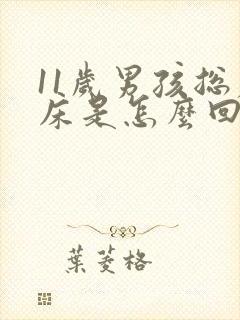 11歲男孩総
床是怎麼回
葉菱格